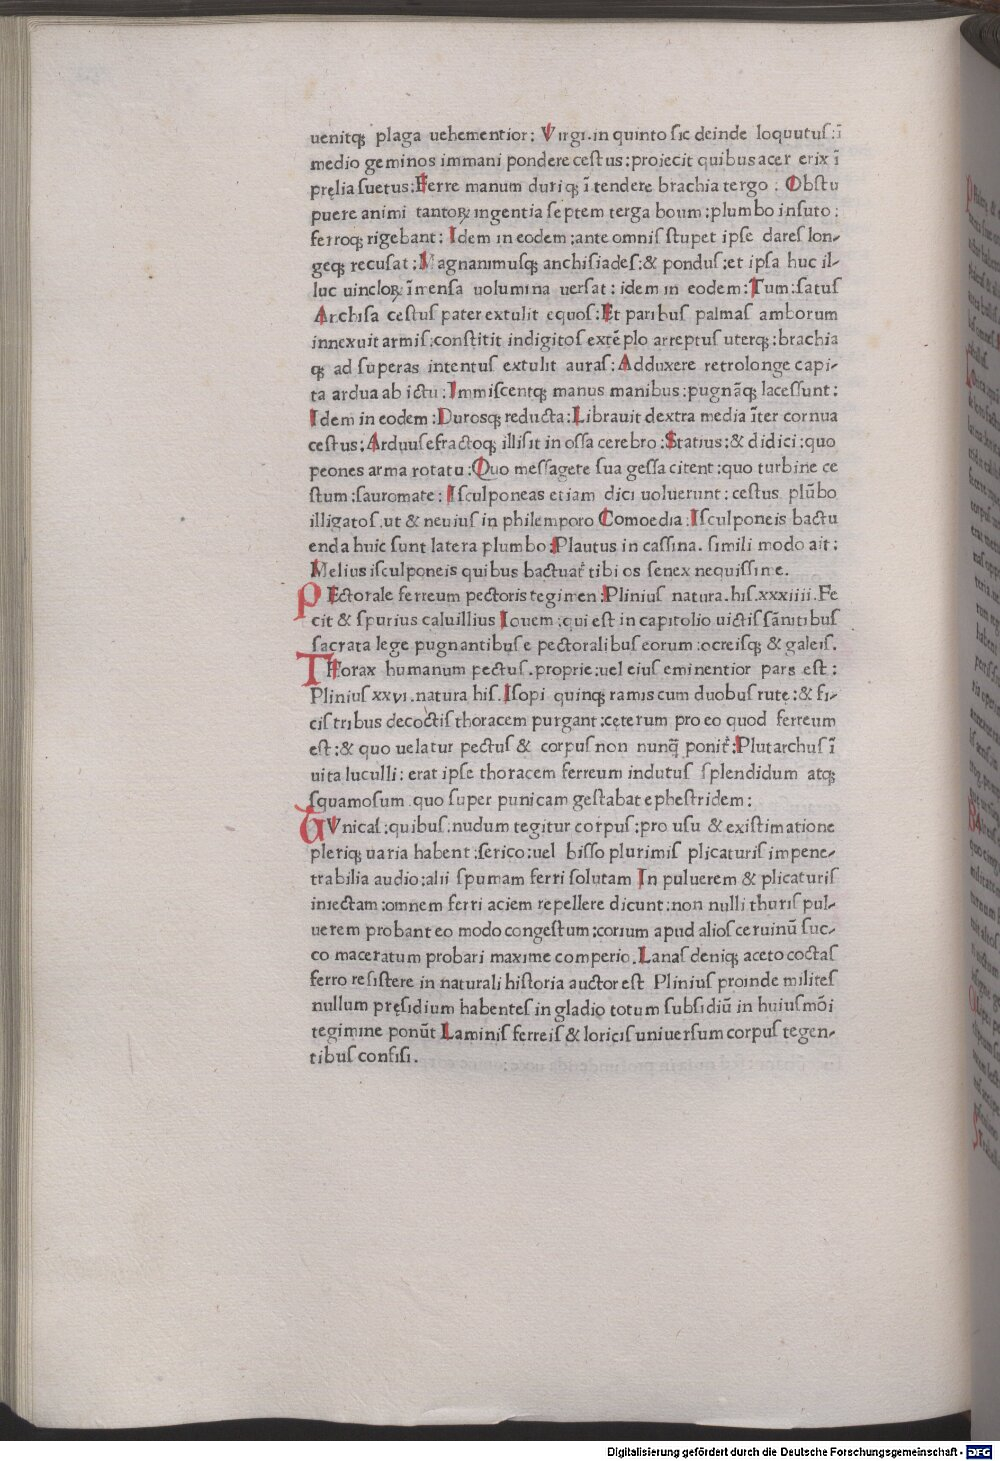 uenitqꝫ plaga uehementior: Virgi.in quinto sic deinde loquutus:ī
medio geminos immani pondere cestus:proiecit quibus acer erix ī
pręlia suetus:Ferre manum duriqꝫ ītendere brachia tergo: Obstu
puere animi tantoꝝ ingentia septem terga boum:plumbo insuto:
ferroqꝫ rigebant: Idem in eodem:ante omnis stupet ipse dares lon-
geqꝫ recusat: Magnanimusqꝫ anchisiades:& pondus:et ipsa huc il-
luc uincloꝝ īmensa uolumina uersat: idem in eodem:Tum:satus
Anchisa cestus pater extulit equos:Et paribus palmas amborum
innexuit armis:constitit indigitos extēplo arreptus uterqꝫ:brachia
qꝫ ad superas intentus extulit auras:Adduxere retrolonge capi-
ta ardua ab ictu:Immiscentqꝫ manus manibus:pugnāqꝫ lacessunt:
Idem in eodem:Durosqꝫ reducta:Librauit dextra media īter cornua
cestus:Arduus effractoqꝫ illisit in ossa cerebro:Statius:& didici:quo
peones arma rotatu:Quo messagete sua gessa citent:quo turbine ce
stum:sauromate:Isculponeas etiam dici uoluerunt:cestus plūbo
illigatos.ut & neuius in philemporo Comoedia:Isculponeis bactu
enda huic sunt latera plumbo:Plautus in cassina. simili modo ait:
Melius isculponeis quibus bactuat᷑ tibi os senex nequissime.
PEctorale ferreum pectoris tegimen:Plinius natura.his.xxxiiii.Fe
cit & spurius caluillius Iouem:qui est in capitolio uictis sānitibus
sacrata lege pugnantibus e pectoralibus eorum:ocreisqꝫ & galeis.
THorax humanum pectus.proprie:uel eius eminentior pars est:
Plinius xxvi.natura his.Isopi quinqꝫ ramis cum duobus rute:& fi-
cis tribus decoctis thoracem purgant:cęterum pro eo quod ferreum
est:& quo uelatur pectus & corpus non nunqꝫ̄ ponit᷑:Plutarchus ī
uita luculli: erat ipse thoracem ferreum indutus splendidum atqꝫ
squamosum quo super punicam gestabat ephestridem:
GVnicas:quibus.nudum tegitur corpus:pro usu & existimatione
pleriqꝫ uaria habent:serico:uel bisso plurimis plicaturis impene-
trabilia audio:alii spumam ferri solutam In puluerem & plicaturis
iniectam:omnem ferri aciem repellere dicunt:non nulli thuris pul-
uerem probant eo modo congestum:corium apud alios ceruinū suc-
co maceratum probari maxime comperio.Lanas deniqꝫ aceto coctas
ferro resistere in naturali historia auctor est Plinius proinde milites
nullum pręsidium habentes in gladio totum subsidiū in huiusmōi
tegimine ponūt Laminis ferreis & loricis uniuersum corpus tegen-
tibus confisi.
Digitalisierung gefördert durch die Deutsche Forschungsgemeinschaft - DFG